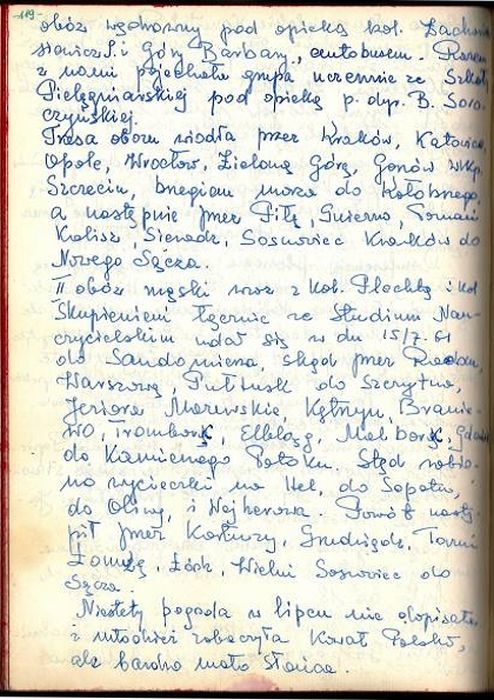 -119-
obóz wędrowny pod opieką kol. Zacho
siewicz S. i Góry Barbary, autobusem. Razem
z nami pojechała grupa uczennic ze Szkoły
Pielęgniarskiej pod opieką p. dyr. B. Soro-
czyńskiej.
Trasa obozu wiodła przez Kraków, Katowice,
Opole, Wrocław, Zieloną Górę, Gorzów Wlkp.
Szczecin, brzegiem morza do Kołobrzega,
a następnie przez Piłę, Gniezno, Poznań
Kalisz, Sieradz, Sosnowiec Kraków do
Nowego Sącza.
II obóz męski wraz z kol. Plechtą i kol
Skupieniem łącznie ze Studium Nau-
czycielskim udał się w dn 15/7. 61
do Sandomierza, skąd przez Radom,
Warszawę, Pułtusk do Szczytna,
Jeziora Mazurskie, Kętrzyn, Branie-
wo, Frombork, Elbląg, Malbork, Gdańsk
do Kamiennego Potoku. Stąd robio-
no wycieczki na Hel, do Sopotu,
do Oliwy, i Wejherowa. Powrót nastą-
pił przez Kartuzy, Grudziądz, Toruń
Łomżę, Łódź, Wieluń Sosnowiec do
Sącza.
Niestety pogoda w lipcu nie dopisała
i młodzież zobaczyła kawał Polski,
ale bardzo mało słońca.